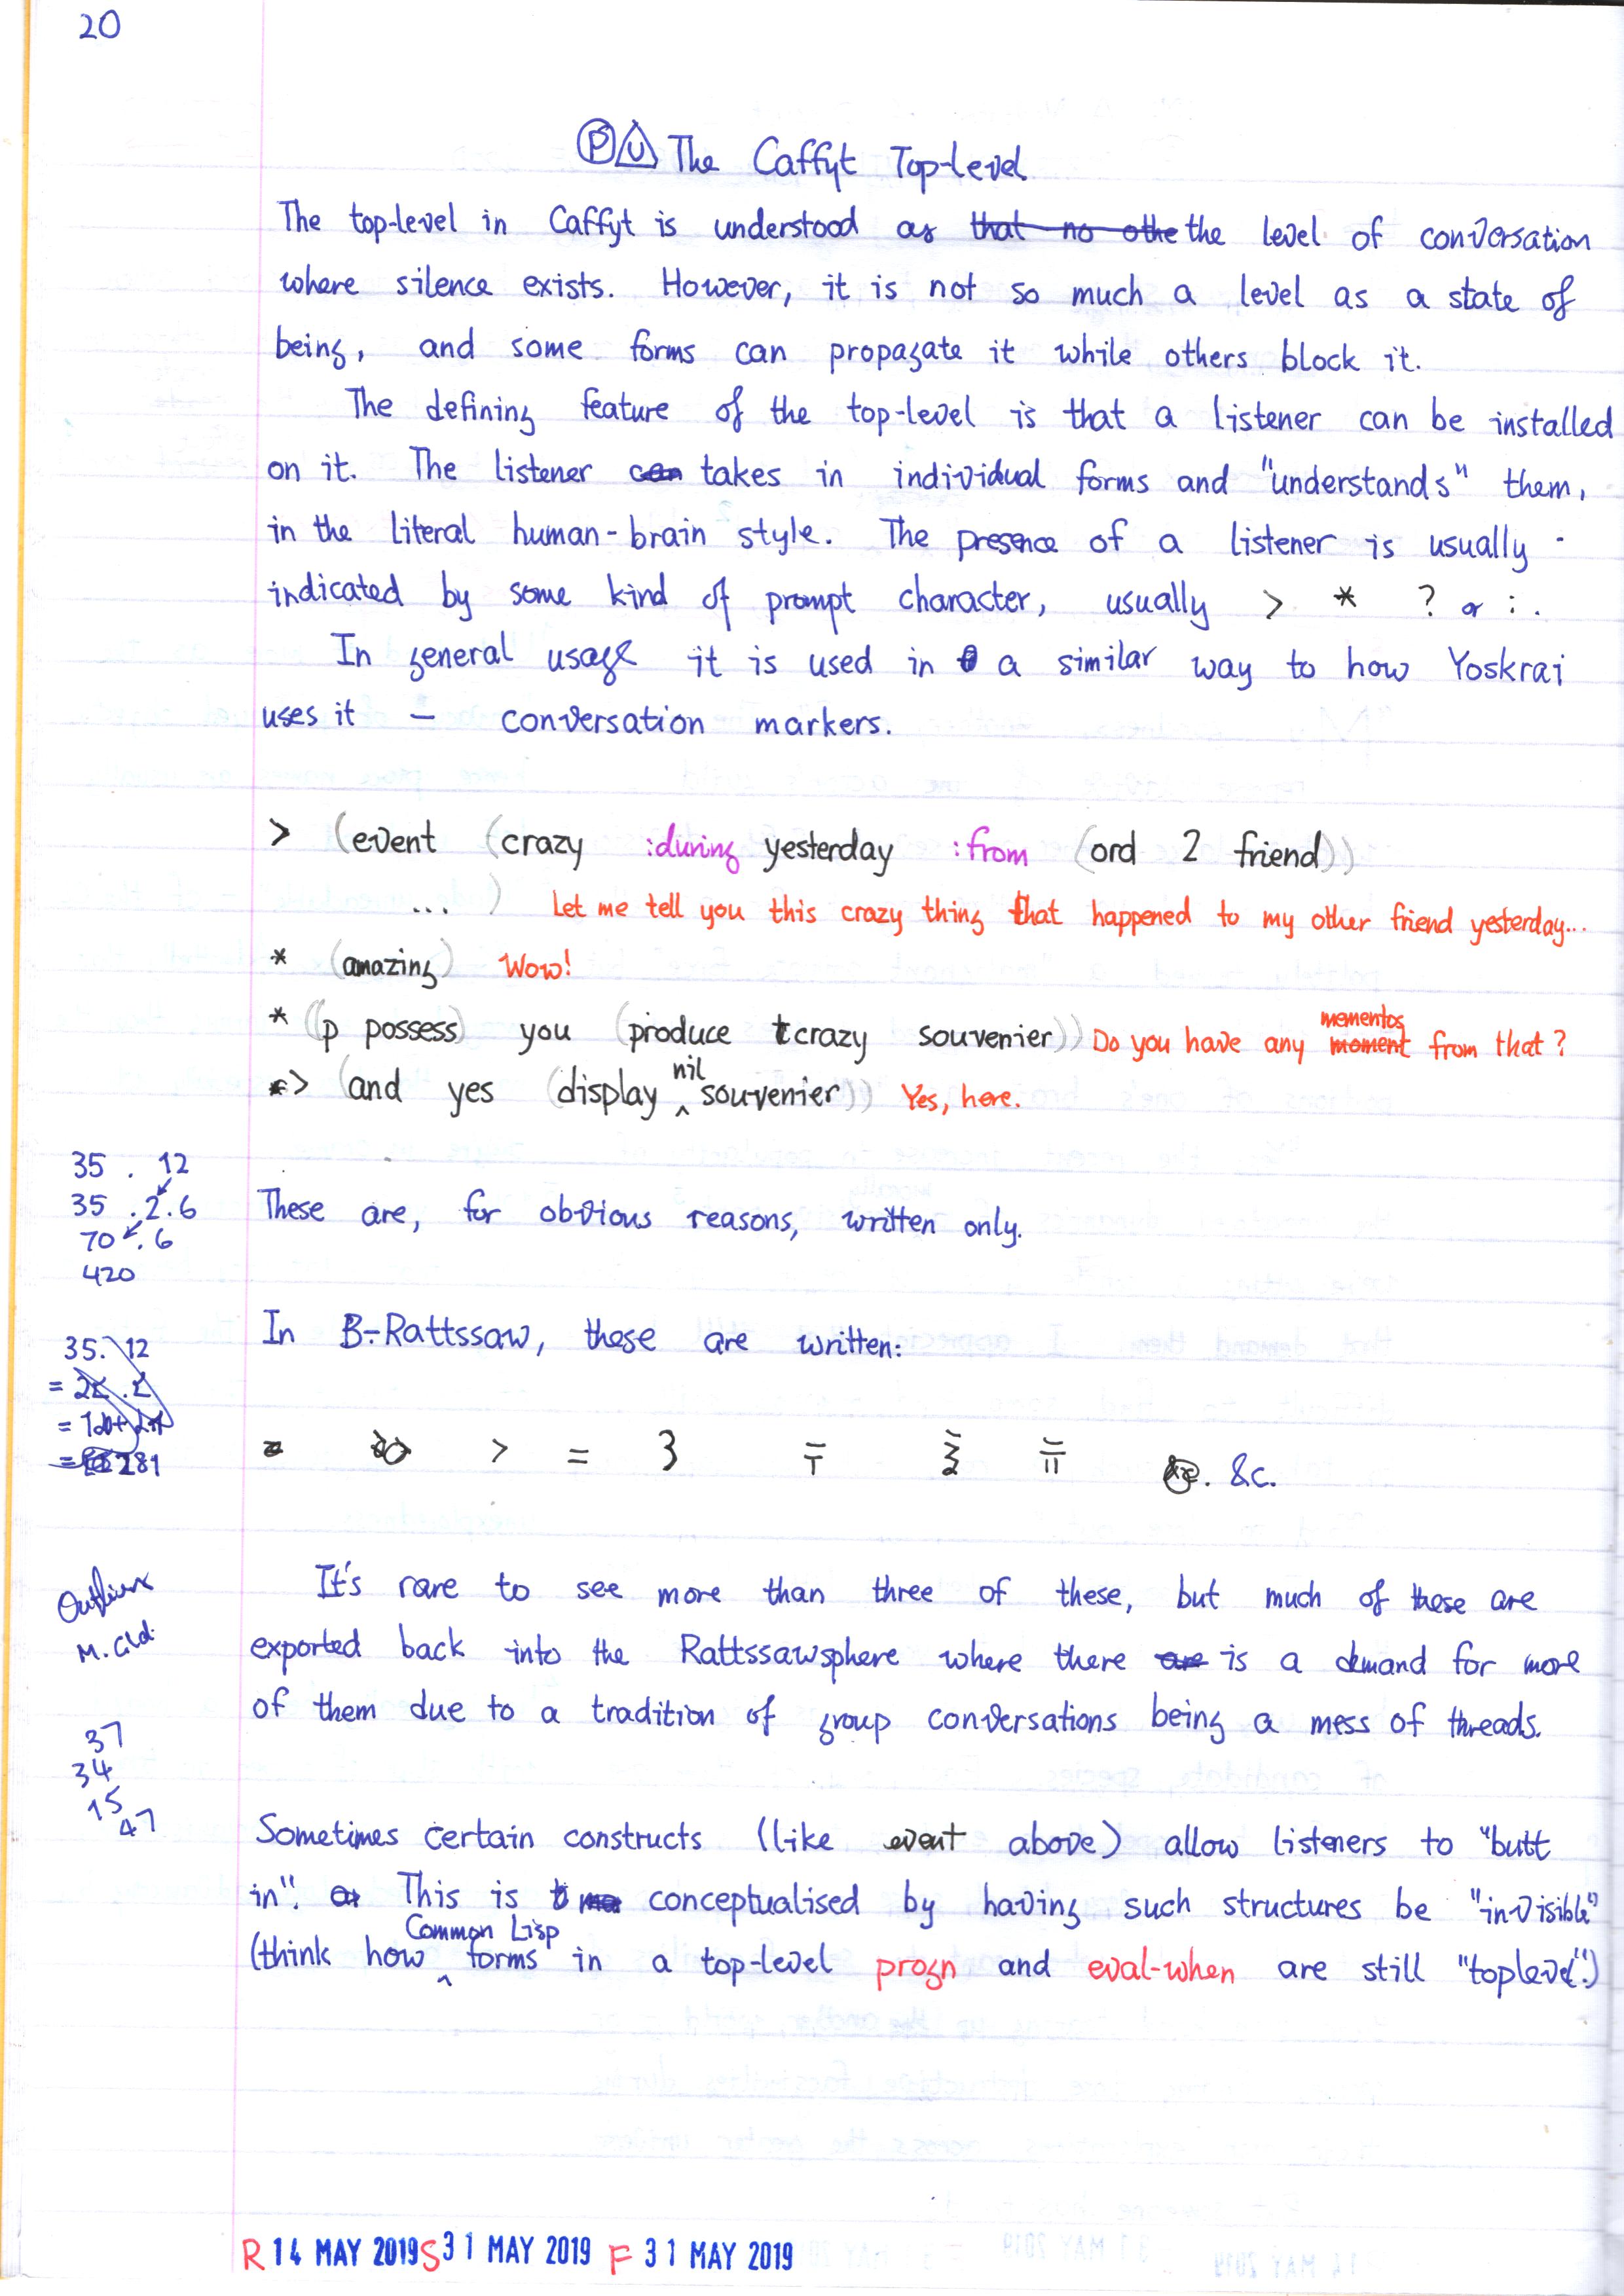 20
Ⓟ U The Caffyt Top-level
The top-level in Caffyt is understood as that no othe the level of conversation
where silence exists. However, it is not so much a level as a state of
being, and some forms can propagate it while others block it.
The defining feature of the top-level is that a listener can be installed
on it. The listener can takes in individual forms and "understands" them,
in the literal human-brain style. The presence of a listener is usually
indicated by some kind of prompt character, usually > * ? or :.
In general usage it is used in a similar way to how Yoskrai
uses it — conversation markers.
> (event (crazy :during yesterday :from (ord 2 friend))
... ) Let me tell you this crazy thing that happened to my other friend yesterday...
* (amazing) Wow!
* ((p possess) you (produce crazy souvenier)) Do you have any moment mementos from that?
> (and yes (display nil souvenier)) Yes, here.
35 . 12
35 . 2 . 6
70 . 6
420
These are, for obvious reasons, written only.
In B-Rattssaw, these are written:
35. 12
> = 3 &c.
It's rare to see more than three of these, but much of these are
exported back into the Rattssawsphere where there are is a demand for more
of them due to a tradition of group conversations being a mess of threads.
37
34
15
47
Sometimes certain constructs (like event above) allow listeners to "butt
in". This is conceptualised by having such structures be "invisible"
(think how Common Lisp forms in a top-level progn and eval-when are still "toplevel".)
R 14 MAY 2019 S 31 MAY 2019 F 31 MAY 2019